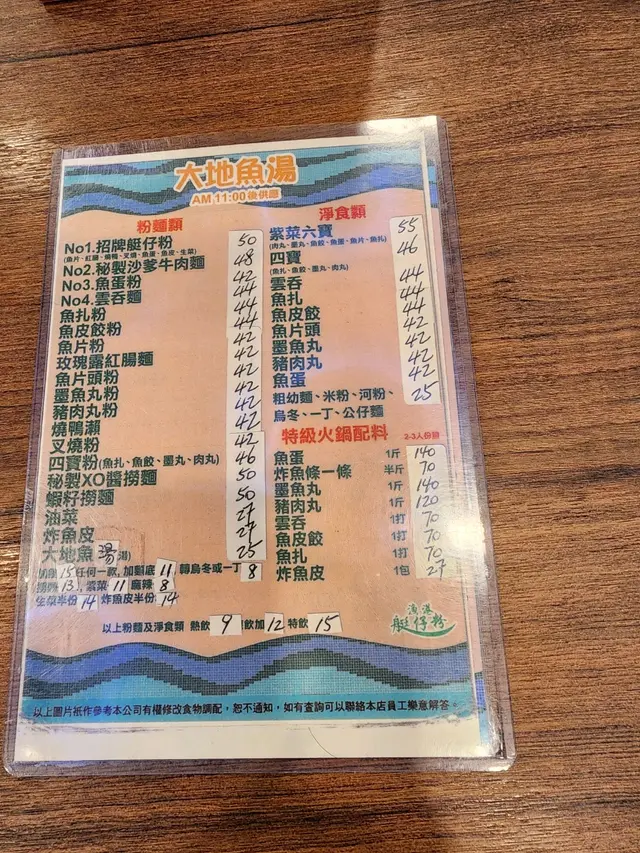 大地魚湯
AM 11:00後供應
粉麵類
No1.招牌艇仔粉 50
(魚片、紅腸、燒鴨、叉燒、魚蛋、魚皮、生菜)
No2.秘製沙爹牛肉麵 48
No3.魚蛋粉 42
No4.雲吞麵 44
魚扎粉 44
魚皮餃粉 44
魚片粉 42
玫瑰露紅腸麵 42
魚片頭粉 42
墨魚丸粉 42
豬肉丸粉 42
燒鴨瀨 42
叉燒粉 42
四寶粉(魚扎、魚餃、墨丸、肉丸) 46
秘製XO醬撈麵 50
蝦籽撈麵 50
油菜 27
炸魚皮 27
大地魚湯 25
淨食類
紫菜六寶 55
(肉丸、墨丸、魚餃、魚蛋、魚片、魚扎)
四寶 46
(魚扎、魚餃、墨丸、肉丸)
雲吞 44
魚扎 44
魚皮餃 44
魚片頭 42
墨魚丸 42
豬肉丸 42
魚蛋 42
粗幼麵、米粉、河粉、 25
烏冬、一丁、公仔麵
特級火鍋配料 2-3人份量
魚蛋 1斤 140
炸魚條一條 半斤 70
墨魚丸 1斤 140
豬肉丸 1斤 120
雲吞 1打 70
魚皮餃 1打 70
魚扎 1打 70
炸魚皮 1包 27
15任何一款, 加麵底 11 轉烏冬或一丁 8
13, 紫菜 11 麻辣 8
生菜半份 14 炸魚皮半份 14
以上粉麵及淨食類 熱飲 9 飲加 12 特飲 15
漁港
艇仔粉
以上圖片祇作參考本公司有權修改食物調配，恕不通知，如有查詢可以聯絡本店員工樂意解答。